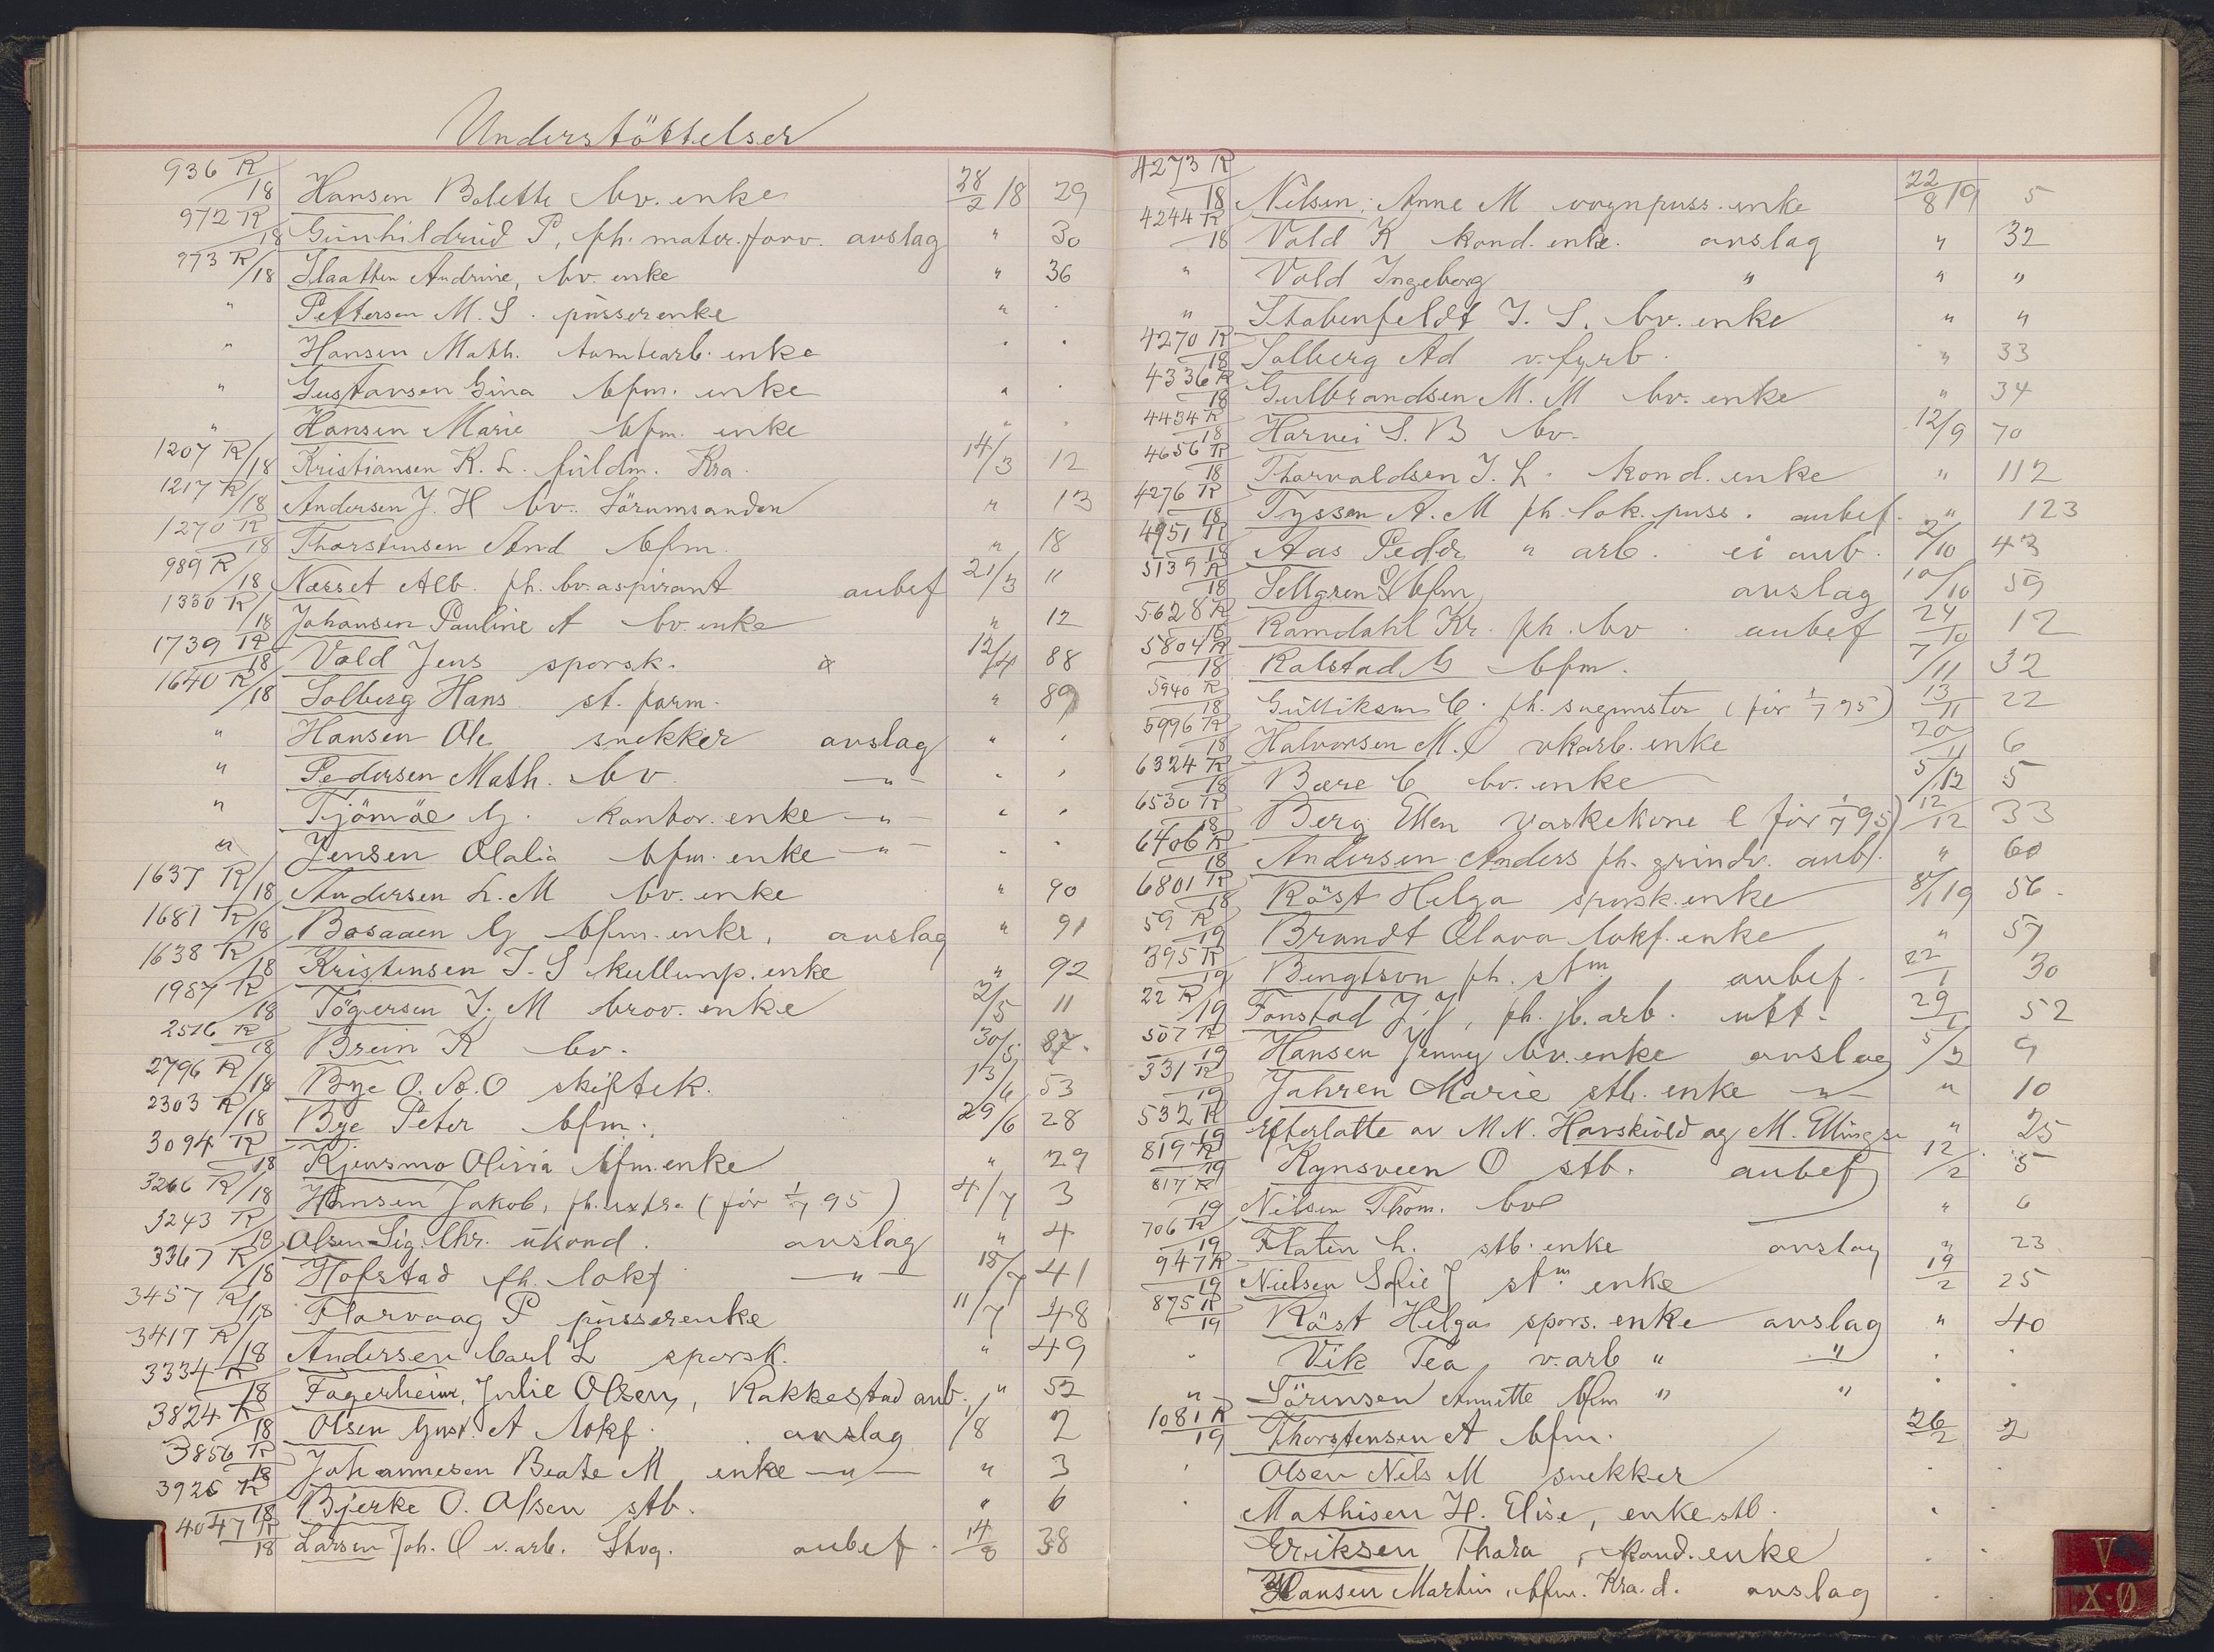 Understöttelser
936 R/18 Hansen Bolette bv. enke 28/2 18 29
972 R/18 Gunhildrud P, fh. mater. forv. avslag " 30
973 R/18 Slaatten Andrine, bv. enke " 36
" Pettersen M. S. pusserenke "
" Hansen Math. tomtearb. enke " "
" Gustavsen Gina bfm. enke " "
" Hansen Marie bfm. enke " "
1207 R/18 Kristiansen K. L. fuldm. Kra. 14/3 12
1217 R/18 Andersen J. H bv. Sörumsanden " 13
1270 R/18 Thorstensen And bfm. " 18
989 R/18 Næsset Alb. fh. bv. aspirant anbef 21/3 11
1330 R/18 Johansen Pauline A bv. enke " 12
1739 R/18 Vold Jens sporsk. 12/4 88
1640 R/18 Solberg Hans st. form. " 89
" Hansen Ole snekker avslag " "
" Pedersen Math. bv. — " — " "
" Tjömöe G. kontor. enke — " — " "
" Jensen Olalia bfm. enke — " — " "
1637 R/18 Andersen L. M bv. enke " 90
1681 R/18 Bosaaen G bfm. enke, avslag " 91
1638 R/18 Kristensen J. S kullemp. enke " 92
1987 R/18 Tögersen J. M brov. enke 2/5 11
2516 R/18 Brein K bv. 30/5 87.
2796 R/18 Bye O. A. O skiftek. 13/6 53
2303 R/18 Bye Peter bfm. 29/6 28
3094 R/18 Kjensmo Olivia bfm. enke " 29
3266 R/18 Hansen Jakob, fh. extra. (før 1/7 95) 4/7 3
3243 R/18 Olsen Sig. Chr. ukond. avslag " 4
3367 R/18 Hofstad fh. lokf — " — 18/7 41
3457 R/18 Florvaag P pusserenke 11/7 48
3417 R/18 Andersen Carl L sporsk. " 49
3334 R/18 Fagerheim, Julie Olsen, Rakkestad anb. " 52
3824 R/18 Olsen Gust. A lokf. avslag 1/8 2
3856 R/18 Johannesen Beate M enke — " — " 3
3926 R/18 Bjerke O. Olsen stb. " 6
4047 R/18 Larsen Joh. O v. arb. Stvg. anbef. 14/8 38
4273 R/18 Nilsen, Anne M vognpuss. enke 22/8 19 5
4244 R/18 Vold K kond. enke. avslag " 32
" Vold Ingeborg " " "
" Stabenfeldt J. S. bv. enke " "
4270 R/18 Solberg Ad v. fyrb. " 33
4336 R/18 Gulbrandsen M. M bv. enke " 34
4434 R/18 Harvei S. B bv. 12/9 70
4656 R/18 Thorvaldsen J. L. kond. enke " 112
4276 R/18 Tyssen A. M fh. lok. puss. anbef. " 123
4951 R/18 Aas Peder " arb. ei anb. 2/10 43
5139 R/18 Sellgren bfm avslag 10/10 59
5628 R/18 Ramdahl Kr. fh. bv. anbef 24/10 12
5804 R/18 Kalstad G bfm. 7/11 32
5940 R/18 Gulliksen C. fh. (før 1/7 95) 13/11 22
5996 R/18 Halvorsen M. O vkarb. enke 20/11 6
6324 R/18 Bære C bv. enke 5/12 5
6530 R/18 Berg Ellen vaskekone (før 1/7 95) 12/12 33
6406 R/18 Andersen Anders fh. grindv. anbf. " 60
6801 R/18 Röst Helga sporsk. enke 8/1 19 56.
59 R/19 Brandt Olava lokf. enke " 57
395 R/19 Bengtson fh. stm anbef. 22/1 30
22 R/19 Fonstad J. J, fh. jb. arb. utt. 29/1 52
507 R/19 Hansen Jenny bv. enke avslag 5/2 9
331 R/19 Jahren Marie stb. enke — " — " 10
532 R/19 Efterlatte av M. N. Havskjold og M. Ellingsen " 25
819 R/19 Kynsveen O stb. anbef 12/2 5
817 R/19 Nilsen Thom. bv " 6
706 R/19 Flatin L. stb. enke avslag " 23
947 R/19 Nielsen Sofie J stm enke 19/2 25
875 R/19 Röst Helga spors. enke avslag " 40
" Vik Tea, v. arb " " " "
" Sörensen Annette bfm " " " "
1081 R/19 Thorstensen A bfm. 26/2 2
" Olsen Nils M snekker " "
" Mathisen H. Elise, enke stb. " "
Eriksen Thora, kond. enke " "
Hansen Martin, bfm. Kra. d. avslag " "
V
X-Ø